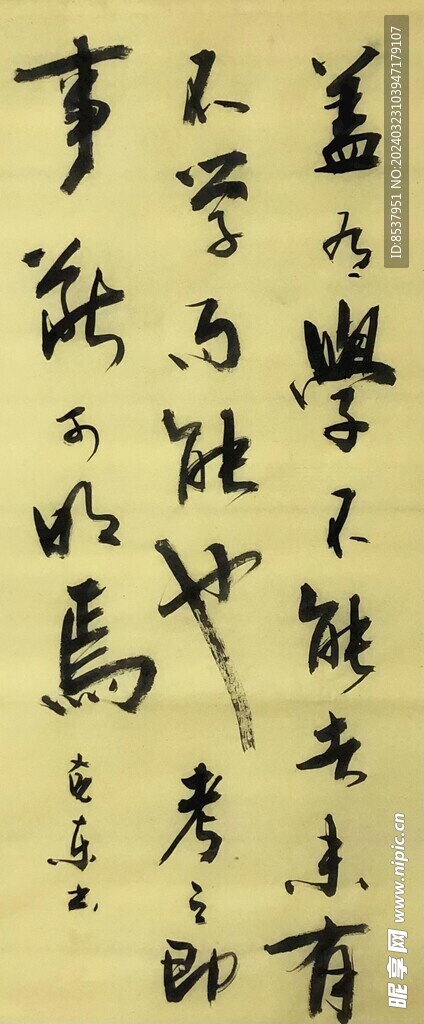 盖有學不能者未有
不学而能也考之即
事断可明焉
克东书
ID:8537951 NO:20240323103947179107
昵享网 www.nipic.cn